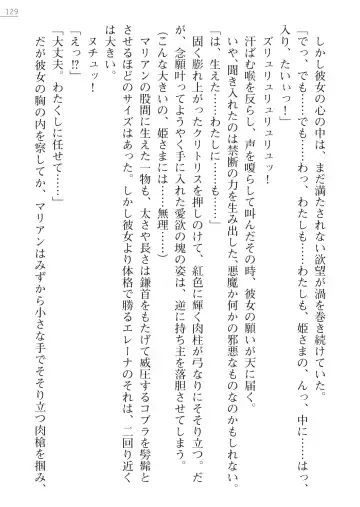 129
しかし彼女の心の中は、まだ満たされない欲望が渦を巻き続けていた。
「でっ、でも……でも……わっ、わたしも……わたしも、姫さまの、んっ、中に……はっ、
入り、たいぃっ！」
ズリュリュリュリュリュッ！
汗ばむ喉を反らし、声を嗄らして叫んだその時、彼女の願いが天に届く。
いや、聞き入れたのは禁断の力を生み出した、悪魔か何かの邪悪なものなのかもしれない。
「は、生えた……わたしに……も……」
固く膨れ上がったクリトリスを押しのけて、紅色に輝く肉柱が弓なりにそそり立つ。
が、念願叶ってようやく手に入れた愛欲の塊の姿は、逆に持ち主を落胆させてしまう。
（こんな大きいの、姫さまには……無理……）
マリアンの股間に生えた一物も、太さや長さは鎌首をもたげて威圧するコブラを髣髴と
させるほどのサイズはあった。しかし彼女より体格で勝るエレーナのそれは、二回り近く
は大きい。
ヌチュッ！
「えっ!?」
「大丈夫。わたくしに任せて……」
だが彼女の胸の内を察してか、マリアンはみずから小さな手でそそり立つ肉槍を掴み、